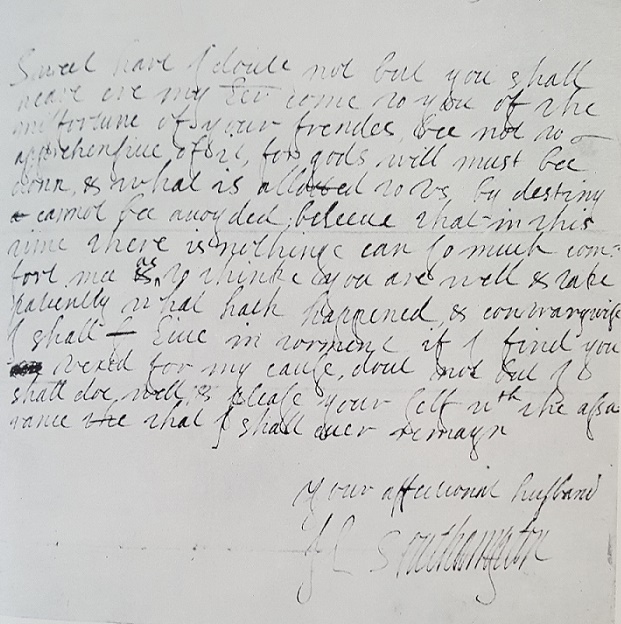 Sweet hart I doute not but you shall
heare ere my letr come to you of the
misfortune of your frendes, bee not to
apprehensiue of it, for gods will must bee
donn, & what is allotted to vs by destiny
cannot bee auoyded; beleeue that in this
time there is nothinge can so much com-
fort mee as to thinke you are well & take
patiently what hath happened, & contrarywise
I shall liue in torment if I find you
vexed for my cause, dout not but I
shall doe well, & please your self wth the assu
rance that I shall euer remayn
your affectionat husband
H Southampton